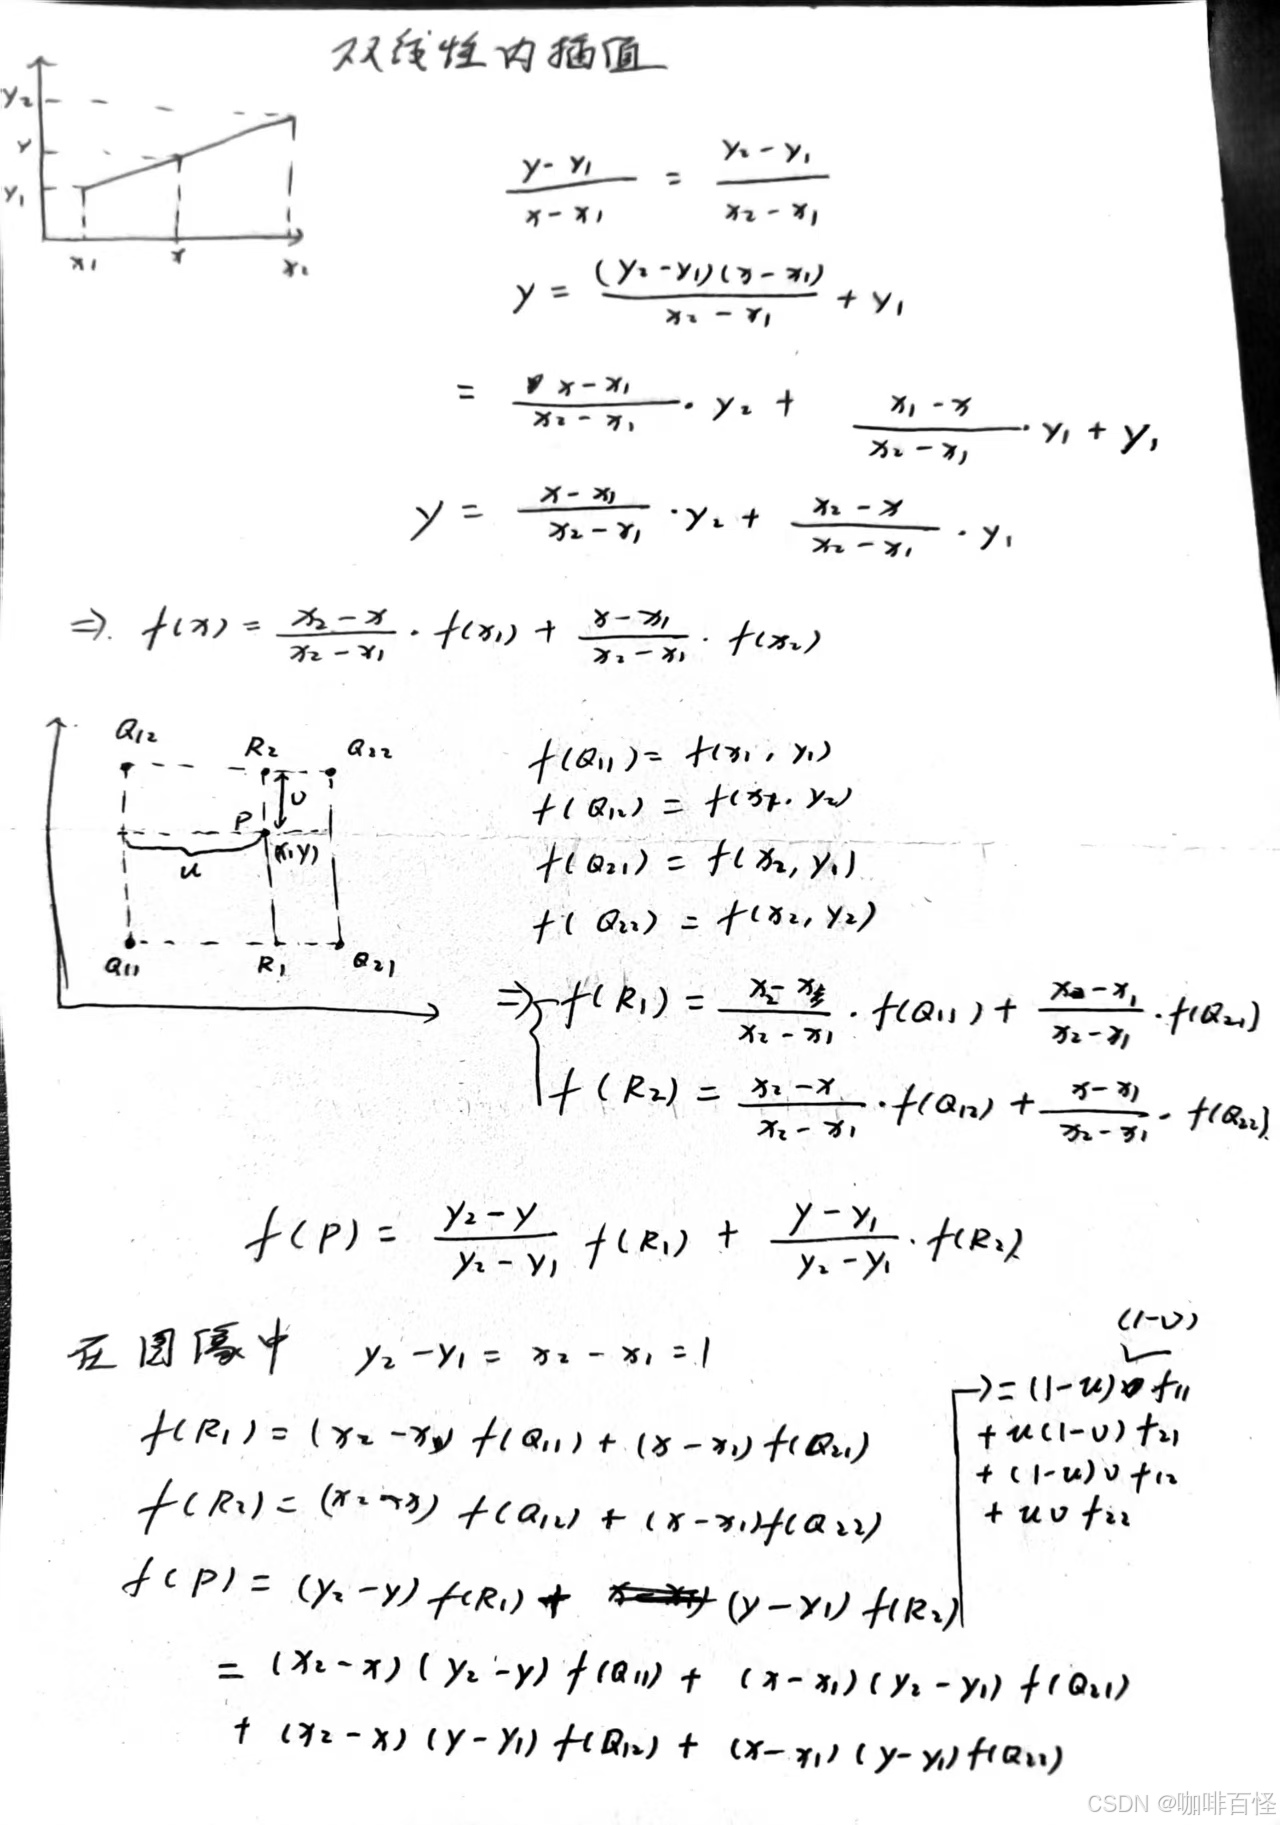 双线性内插值
y₂
y
y₁
x₁ x x₂
(y - y₁)/(x - x₁) = (y₂ - y₁)/(x₂ - x₁)
y = (y₂ - y₁)(x - x₁)/(x₂ - x₁) + y₁
= (x - x₁)/(x₂ - x₁) · y₂ + (x₁ - x)/(x₂ - x₁) · y₁ + y₁
y = (x - x₁)/(x₂ - x₁) · y₂ + (x₂ - x)/(x₂ - x₁) · y₁
⇒ f(x) = (x₂ - x)/(x₂ - x₁) · f(x₁) + (x - x₁)/(x₂ - x₁) · f(x₂)
Q₁₂ R₂ Q₂₂
υ
P
(x, y)
u
Q₁₁ R₁ Q₂₁
f(Q₁₁) = f(x₁, y₁)
f(Q₁₂) = f(x₁, y₂)
f(Q₂₁) = f(x₂, y₁)
f(Q₂₂) = f(x₂, y₂)
⇒ f(R₁) = (x₂ - x)/(x₂ - x₁) · f(Q₁₁) + (x - x₁)/(x₂ - x₁) · f(Q₂₁)
f(R₂) = (x₂ - x)/(x₂ - x₁) · f(Q₁₂) + (x - x₁)/(x₂ - x₁) · f(Q₂₂)
f(P) = (y₂ - y)/(y₂ - y₁) f(R₁) + (y - y₁)/(y₂ - y₁) · f(R₂)
在图像中 y₂ - y₁ = x₂ - x₁ = 1
f(R₁) = (x₂ - x) f(Q₁₁) + (x - x₁) f(Q₂₁)
f(R₂) = (x₂ - x) f(Q₁₂) + (x - x₁) f(Q₂₂)
f(P) = (y₂ - y) f(R₁) + (y - y₁) f(R₂)
(1-υ)
→ = (1-u) f₁₁
+ u(1-υ) f₂₁
+ (1-u)υ f₁₂
+ uυ f₂₂
= (x₂ - x)(y₂ - y) f(Q₁₁) + (x - x₁)(y₂ - y₁) f(Q₂₁)
+ (x₂ - x)(y - y₁) f(Q₁₂) + (x - x₁)(y - y₁) f(Q₂₂)
CSDN @咖啡百怪